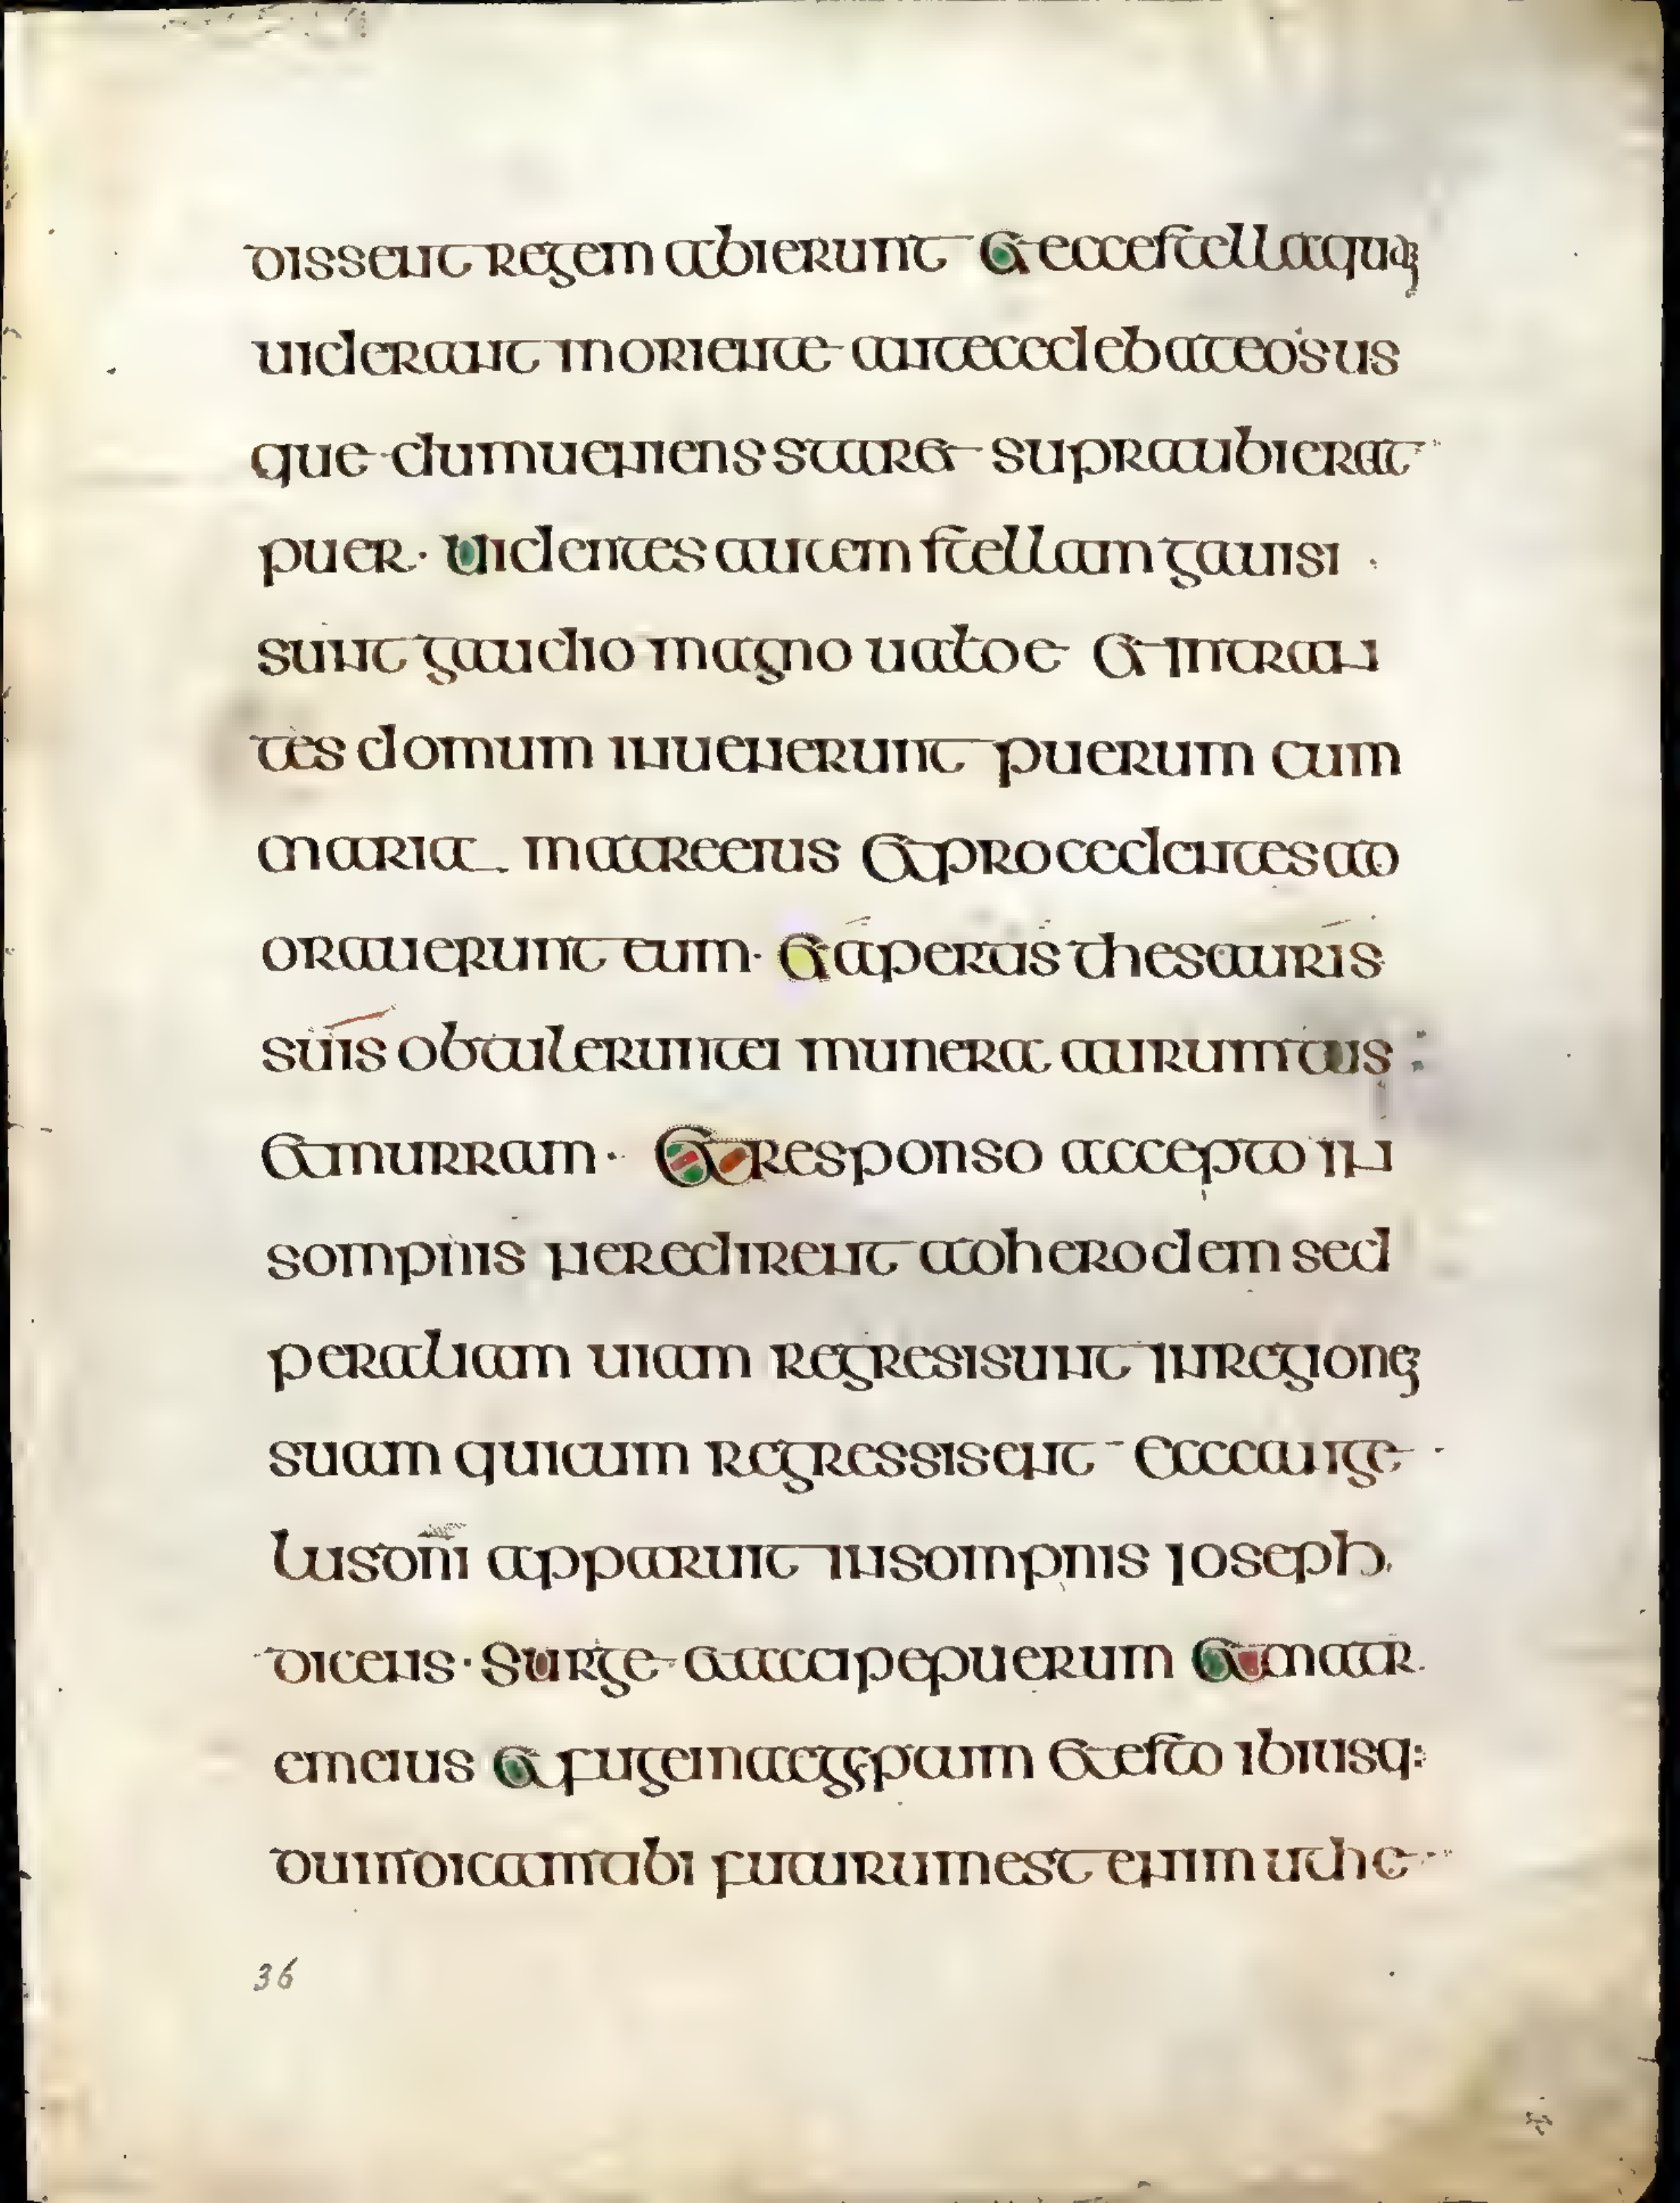 dissent regem abierunt & ecce stella quam
uiderant in oriente antecedebat eos us
que dum ueniens staret supra ubi erat
puer · Uidentes autem stellam gauisi ·
sunt gaudio magno ualde & intran
tes domum inuenerunt puerum cum
maria matre eius & procedentes ad
orauerunt eum · & apertis thesauris
suis obtulerunt ei munera aurum tus
& murram · & responso accepto in
sompnis ne redirent ad herodem sed
per aliam uiam regresi sunt in regionem
suam qui cum regressi sent Ecce ange
lus dñi apparuit in sompnis ioseph
dicens · Surge & accipe puerum & matr
em eius & fuge in aegyptum & esto ibi usq:
dum dicam tibi futurum est enim ut he
36